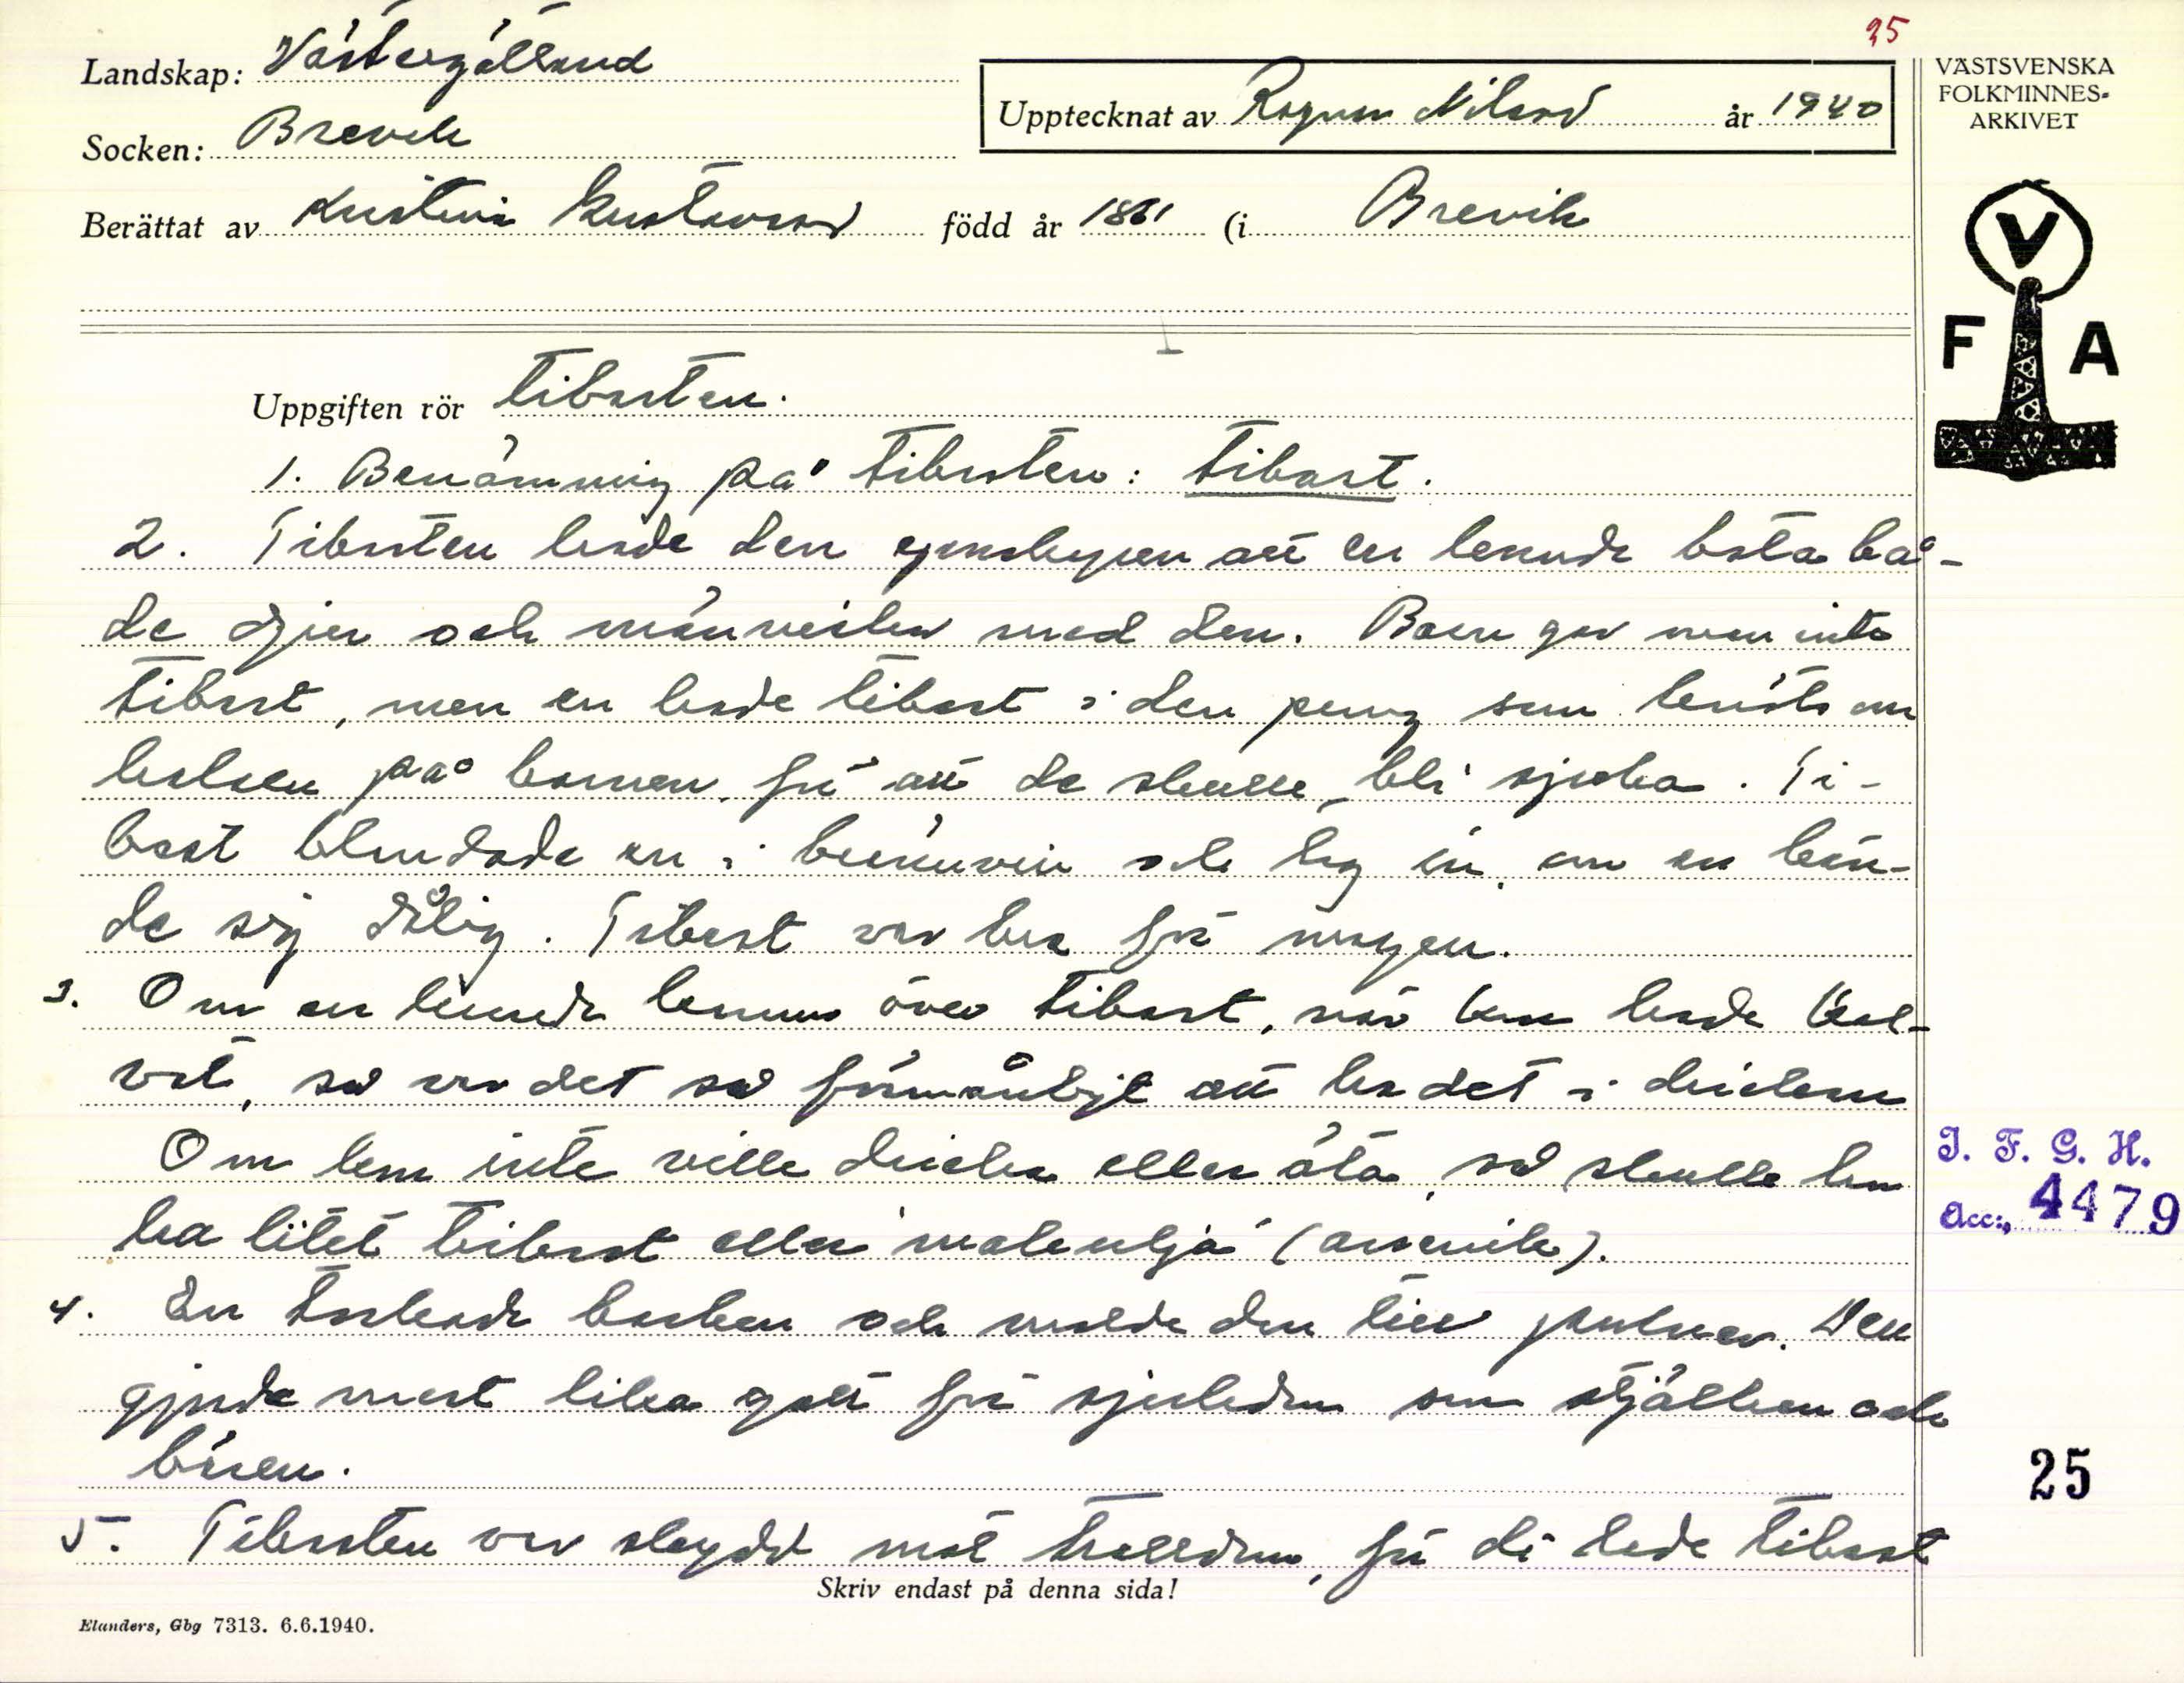 25
Landskap: Västergötland
Socken: Brevik
Upptecknat av Ragnar Nilsson år 1940
VÄSTSVENSKA
FOLKMINNES-
ARKIVET
Berättat av Kristina Gustavsson född år 1861 (i Brevik
V
F A
Uppgiften rör tibasten.
1. Benämning på tibasten: tibast.
2. Tibasten hade den egenskapen att en kunde bota bå-
de djur och människor med den. Barn gav man inte
tibast, men en hade tibast i den pung som hängts om
halsen på barnen, för att de skulle bli sjuka. Ti-
bast blandade en i brännvin och tog in, om en kän-
de sig dålig. Tibast var bra för magen.
3. Om en kunde komma över tibast, när kon hade kal-
vat, så var det så förmånligt att ha det i drickan
Om kon inte ville dricka eller äta, så skulle hon
ha litet tibast eller (arsenik).
4. En torkade barken och malde den till pulver. Den
gjorde mest lika gott för sjukdom som stjälken och
bären.
5. Tibasten var skydd mot trolldom, för di hade tibast
Skriv endast på denna sida!
J. F. G. H.
Acc:, 4479
25
Elanders, Gbg 7313. 6.6.1940.